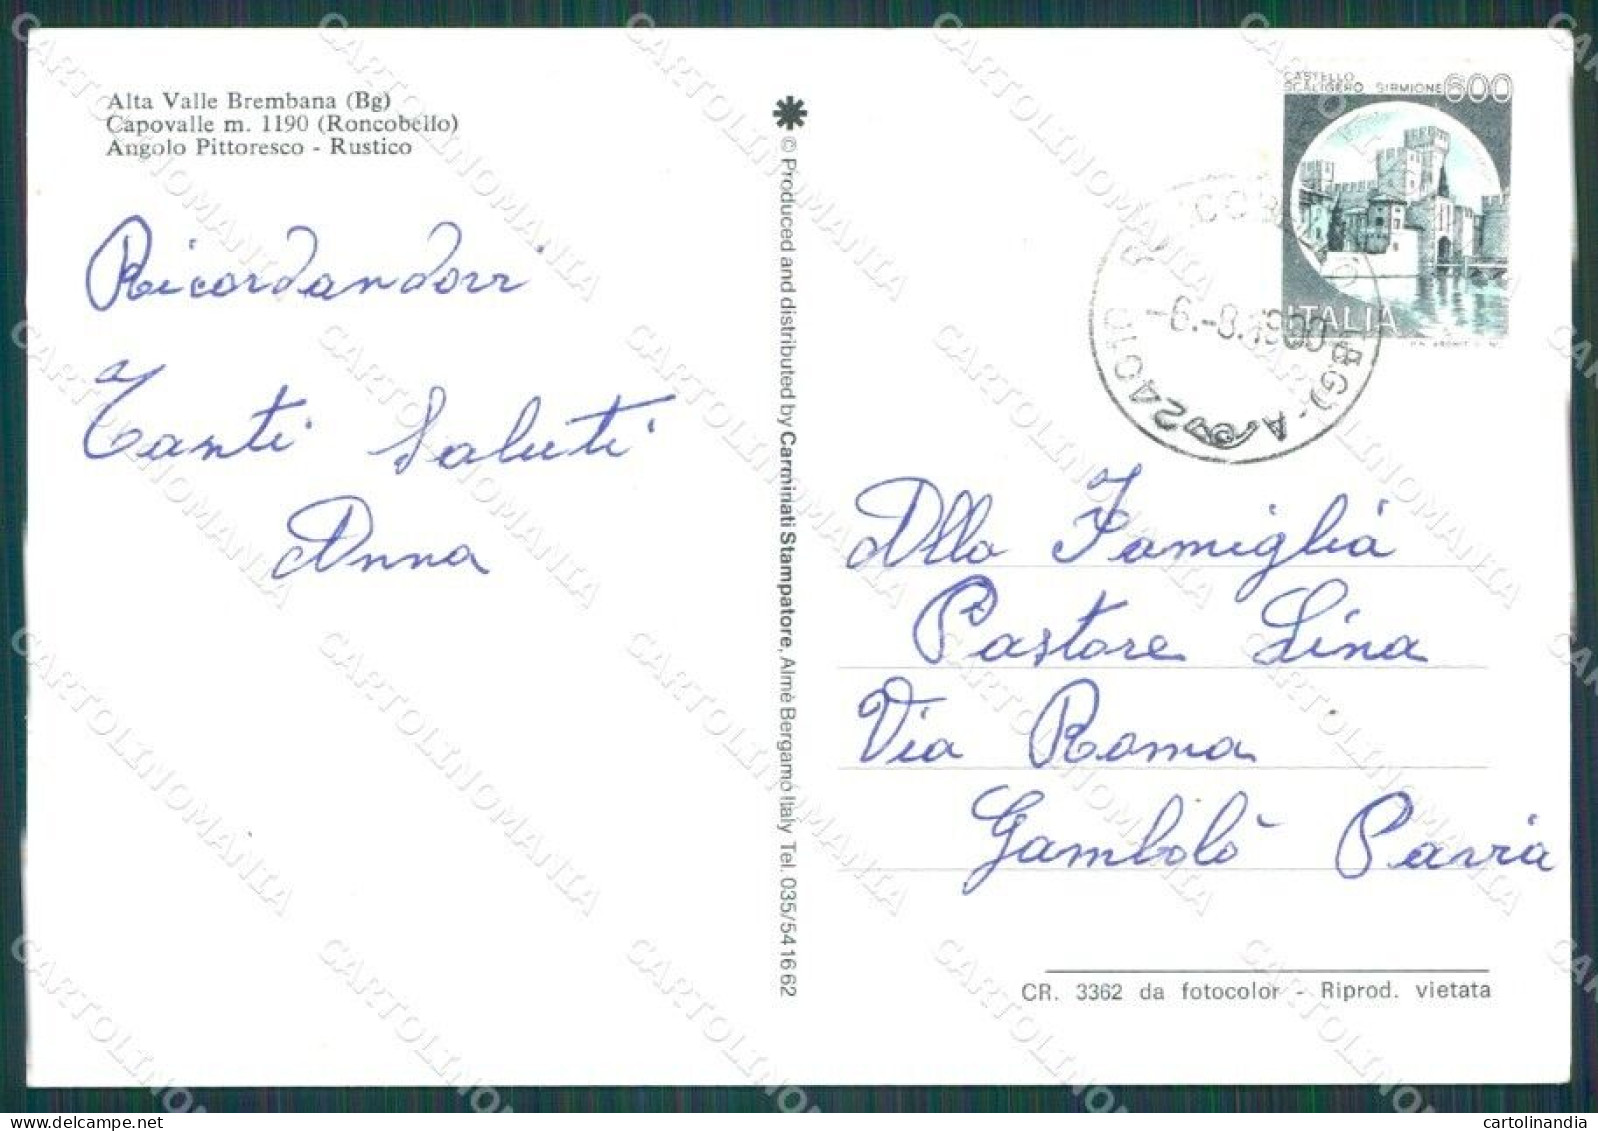 Alta Valle Brembana (Bg)
Capovalle m. 1190 (Roncobello)
Angolo Pittoresco - Rustico
Ricordandovi
Tanti Saluti
Anna
© Produced and distributed by Carminati Stampatore, Almè Bergamo Italy Tel. 035/54 16 62
CASTELLO
SCALIGERO SIRMIONE 600
ITALIA
24010
(BG) - A
Alla Famiglia
Pastore Lina
Via Roma
Gambolò Pavia
CR. 3362 da fotocolor - Riprod. vietata
CARTOLINOMANIA
cartolinandia